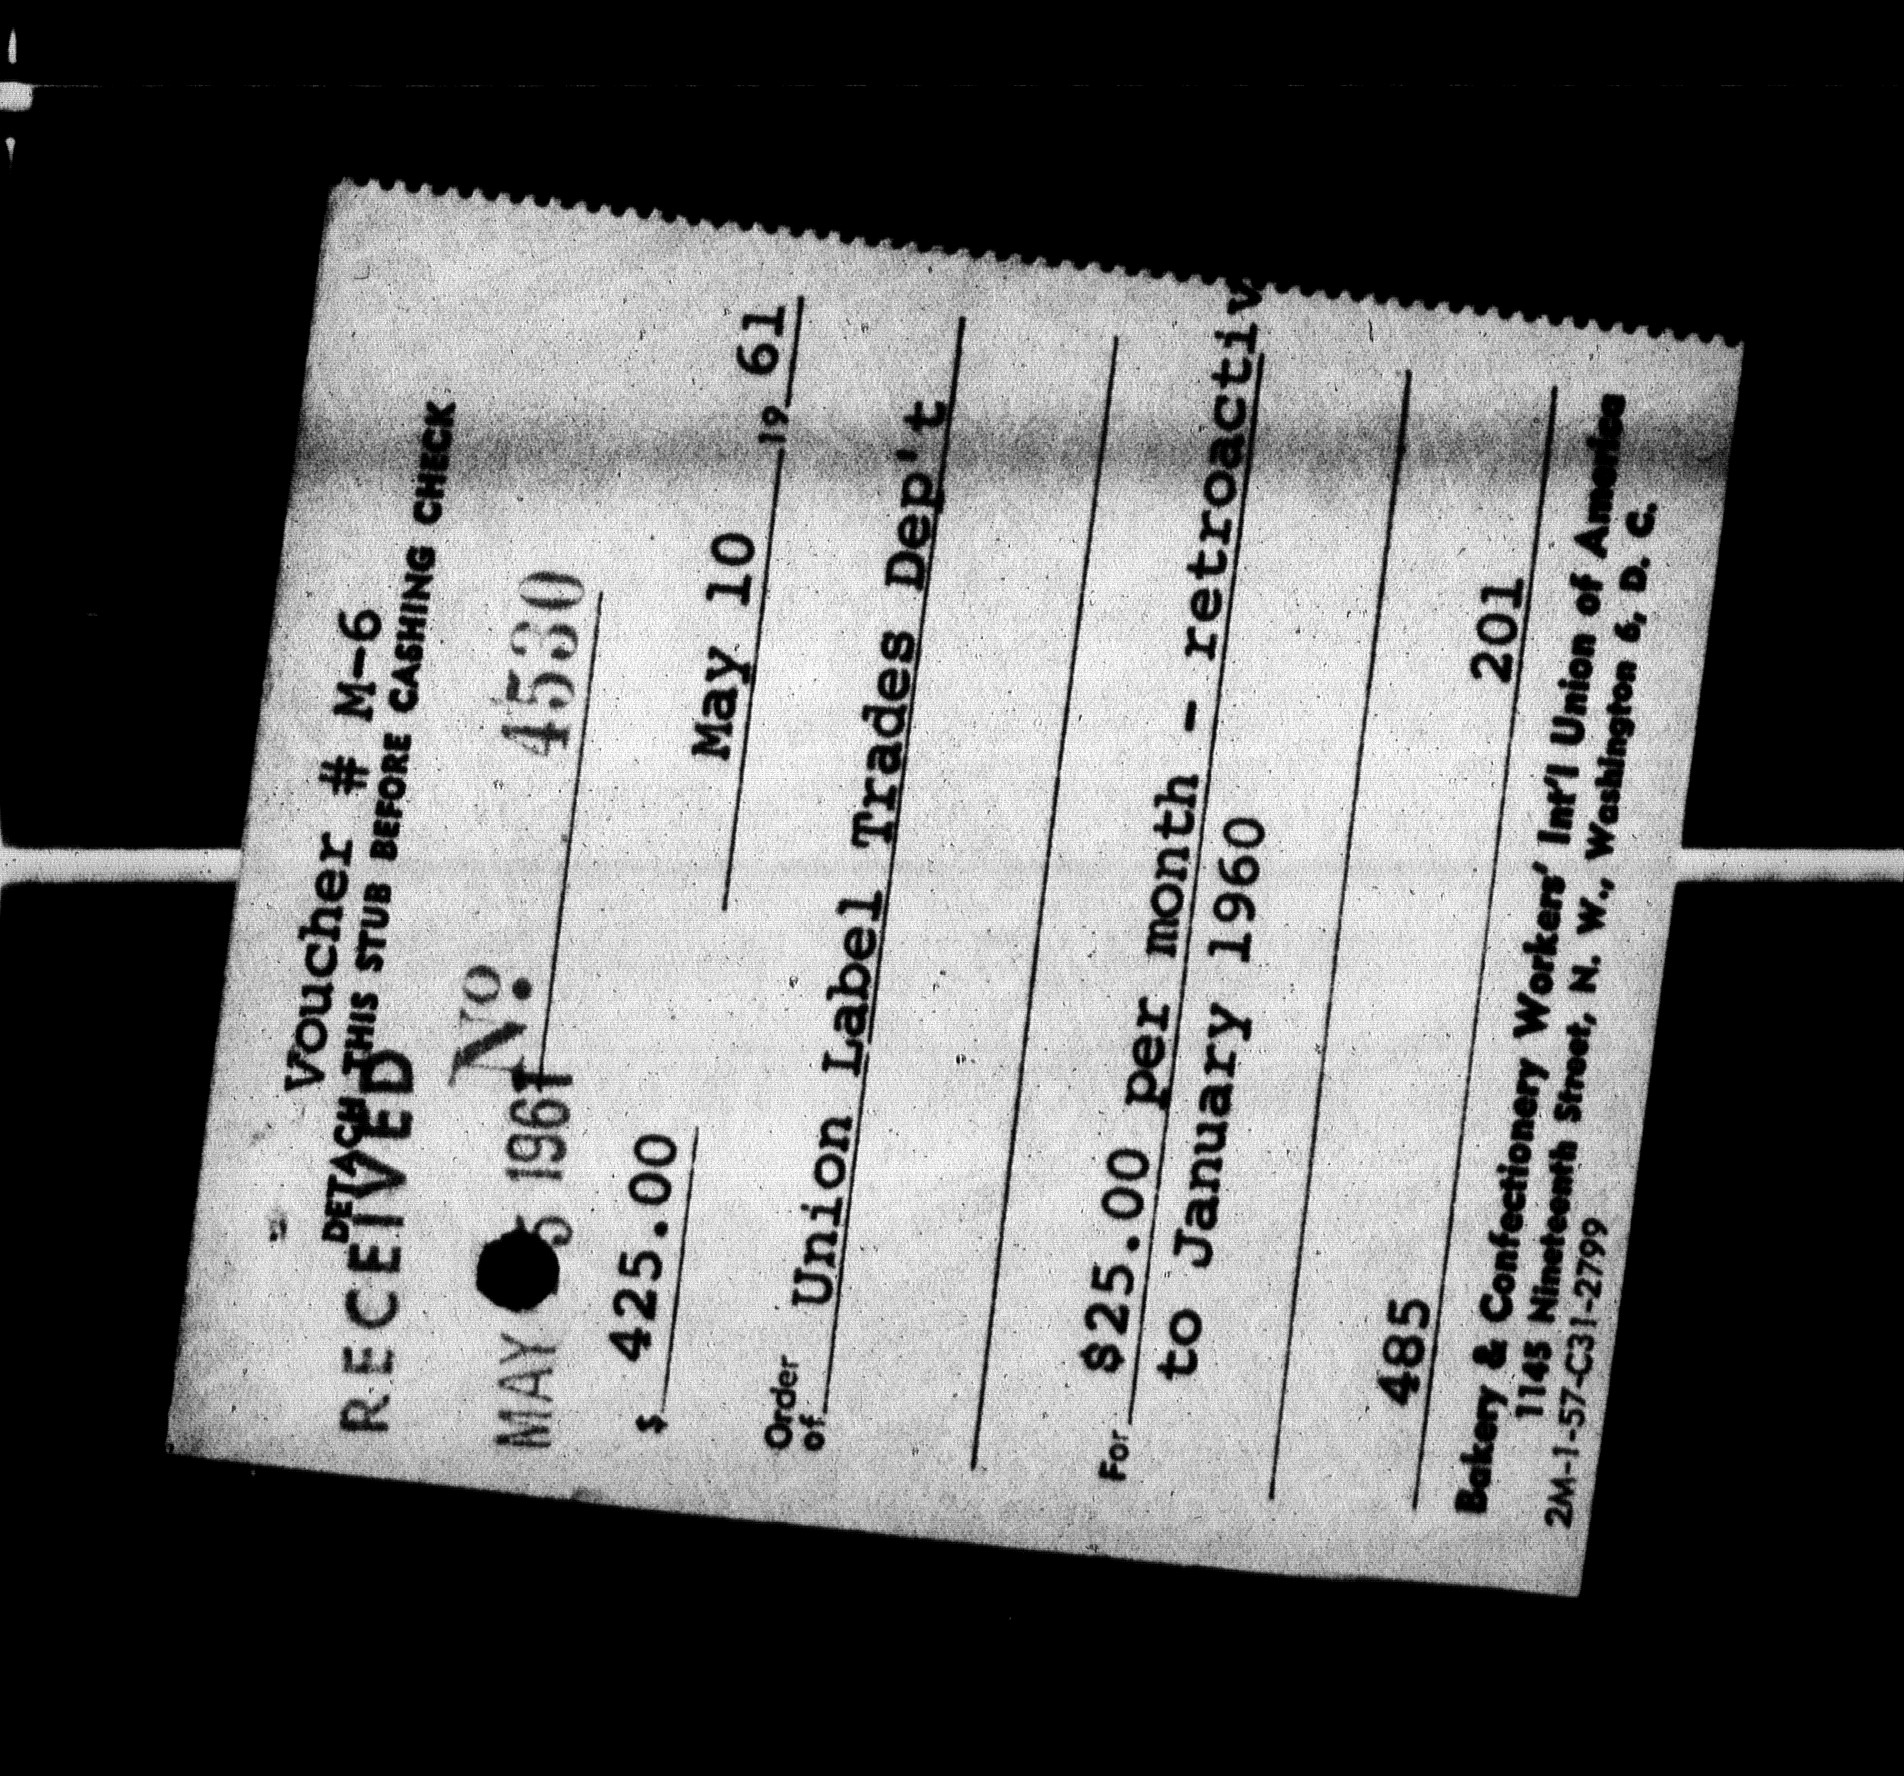 Voucher # M-6
DETACH THIS STUB BEFORE CASHING CHECK
RECEIVED
No. 4530
MAY 5 1961
$ 425.00
May 10 19 61
Order of Union Label Trades Dep't
For $25.00 per month - retroactiv
to January 1960
485 201
Bakery & Confectionery Workers' Int'l Union of America
1145 Nineteenth Street, N. W., Washington 6, D. C.
2M-1-57-C31-2799